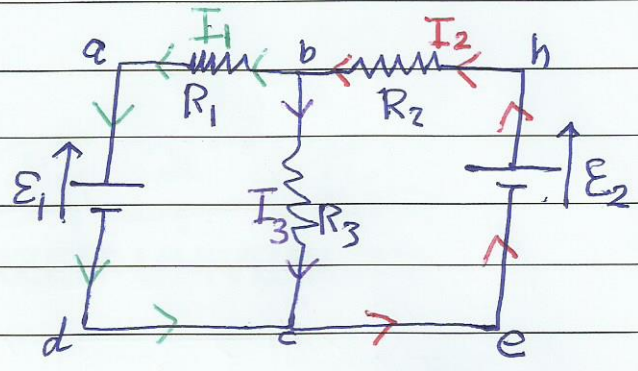 I₁ I₂
a b h
R₁ R₂
ε₁ I₃ R₃ ε₂
d c e